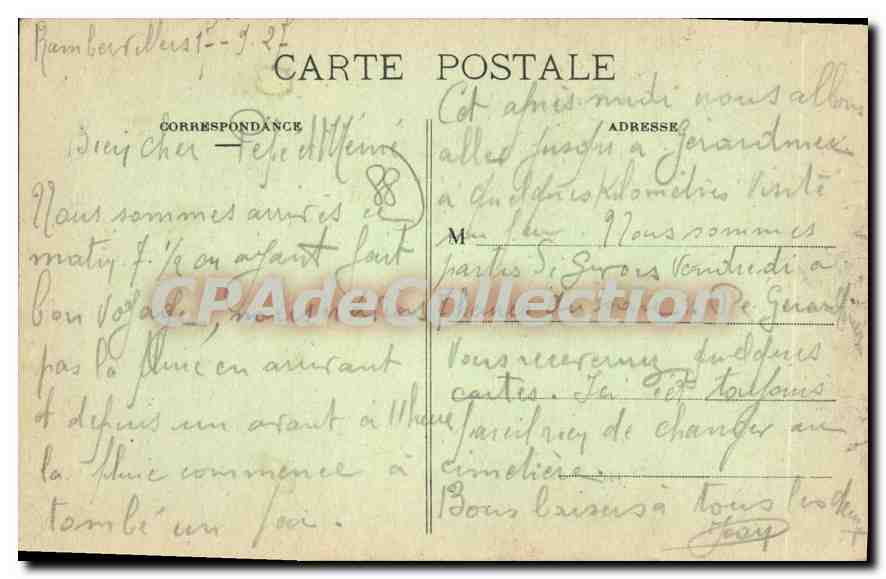 Rambervillers 1r - 9. 2
CARTE POSTALE
CORRESPONDANCE
Bien cher Pépé et Mémé
88
Nous sommes arrivés ce
matin 7.1/2 on ayant fait
bon voyage, nous
pas la pluie en arrivant
et depuis un avant à 11 heure
la pluie commence à
tombé un
ADRESSE
Cet après-midi nous allons
aller jusqu'à Gérardmer
à quelques kilomètres
M
Nous sommes
partis Vendredi a
Gerard
Vous receverez quelques
cartes. Ici est toujours
pareil rien de changer au
cimetière.
Bons baisers à tous les deux
CPAdeCollection